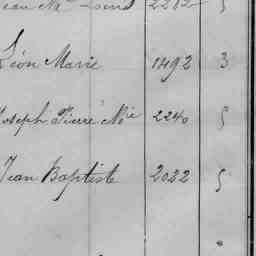 Jean M^ie Louis 2282 5
Léon Marie 1492 3
Joseph Pierre M^ie 2240 5
Jean Baptiste 2022 5